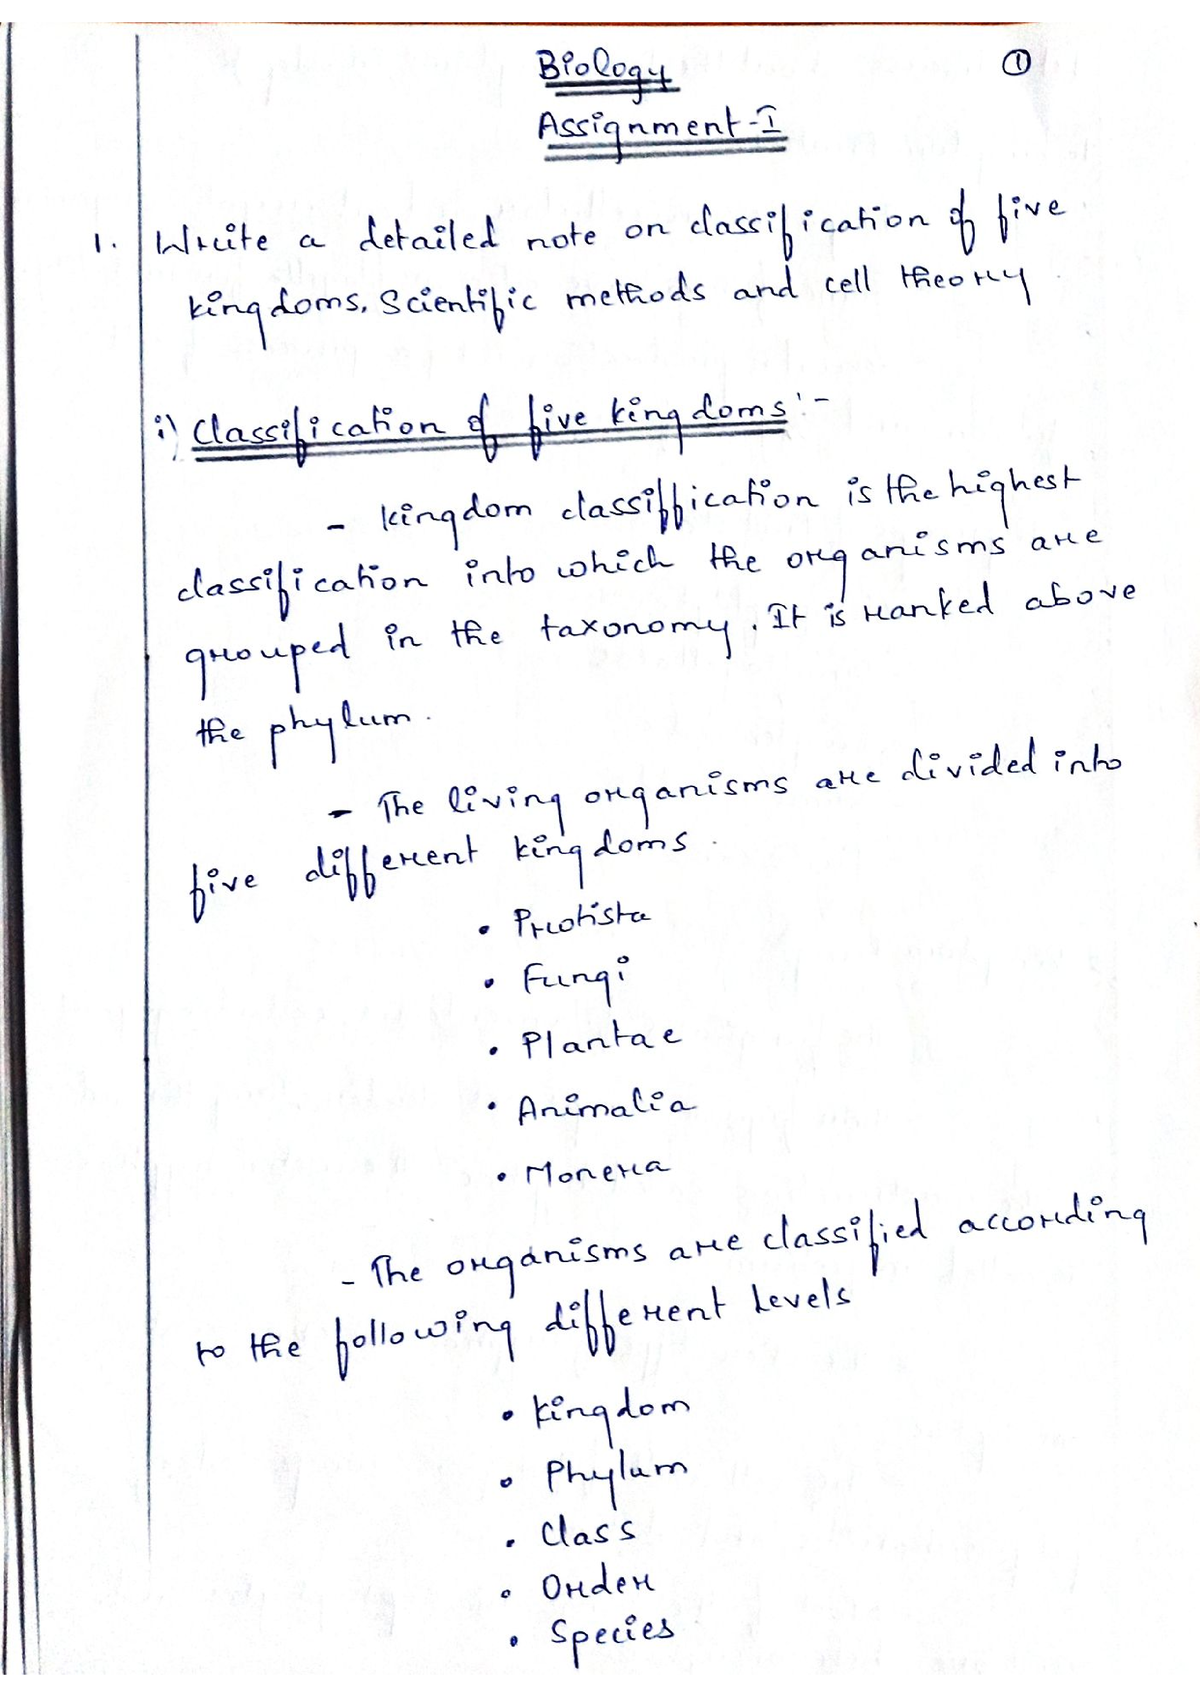 Biology
①
Assignment-I
1. Write a detailed note on classification of five
kingdoms. Scientific methods and cell theory
i) Classification of five kingdoms:-
- kingdom classiffication is the highest
classification into which the organisms are
grouped in the taxonomy. It is ranked above
the phylum.
- The living organisms are divided into
five different kingdoms.
• Protista
• Fungi
• Plantae
• Animalia
• Monera
- The organisms are classified according
to the following different levels
• kingdom
• Phylum
• Class
• Order
• Species